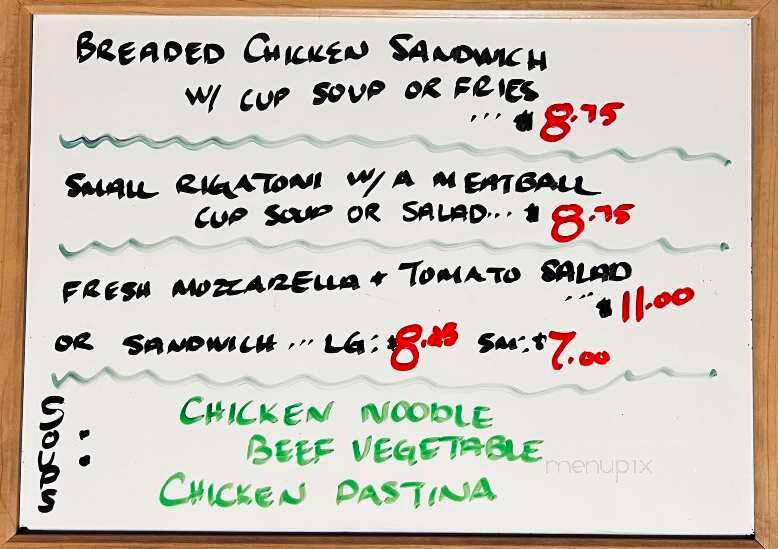 BREADED CHICKEN SANDWICH
W/ CUP SOUP OR FRIES
... $8.75
SMALL RIGATONI W/A MEATBALL
CUP SOUP OR SALAD... $8.75
FRESH MOZZARELLA + TOMATO SALAD
... $11.00
OR SANDWICH... LG: $8. SM: $7.00
SOUPS:
CHICKEN NOODLE
BEEF VEGETABLE
CHICKEN PASTINA
menupix